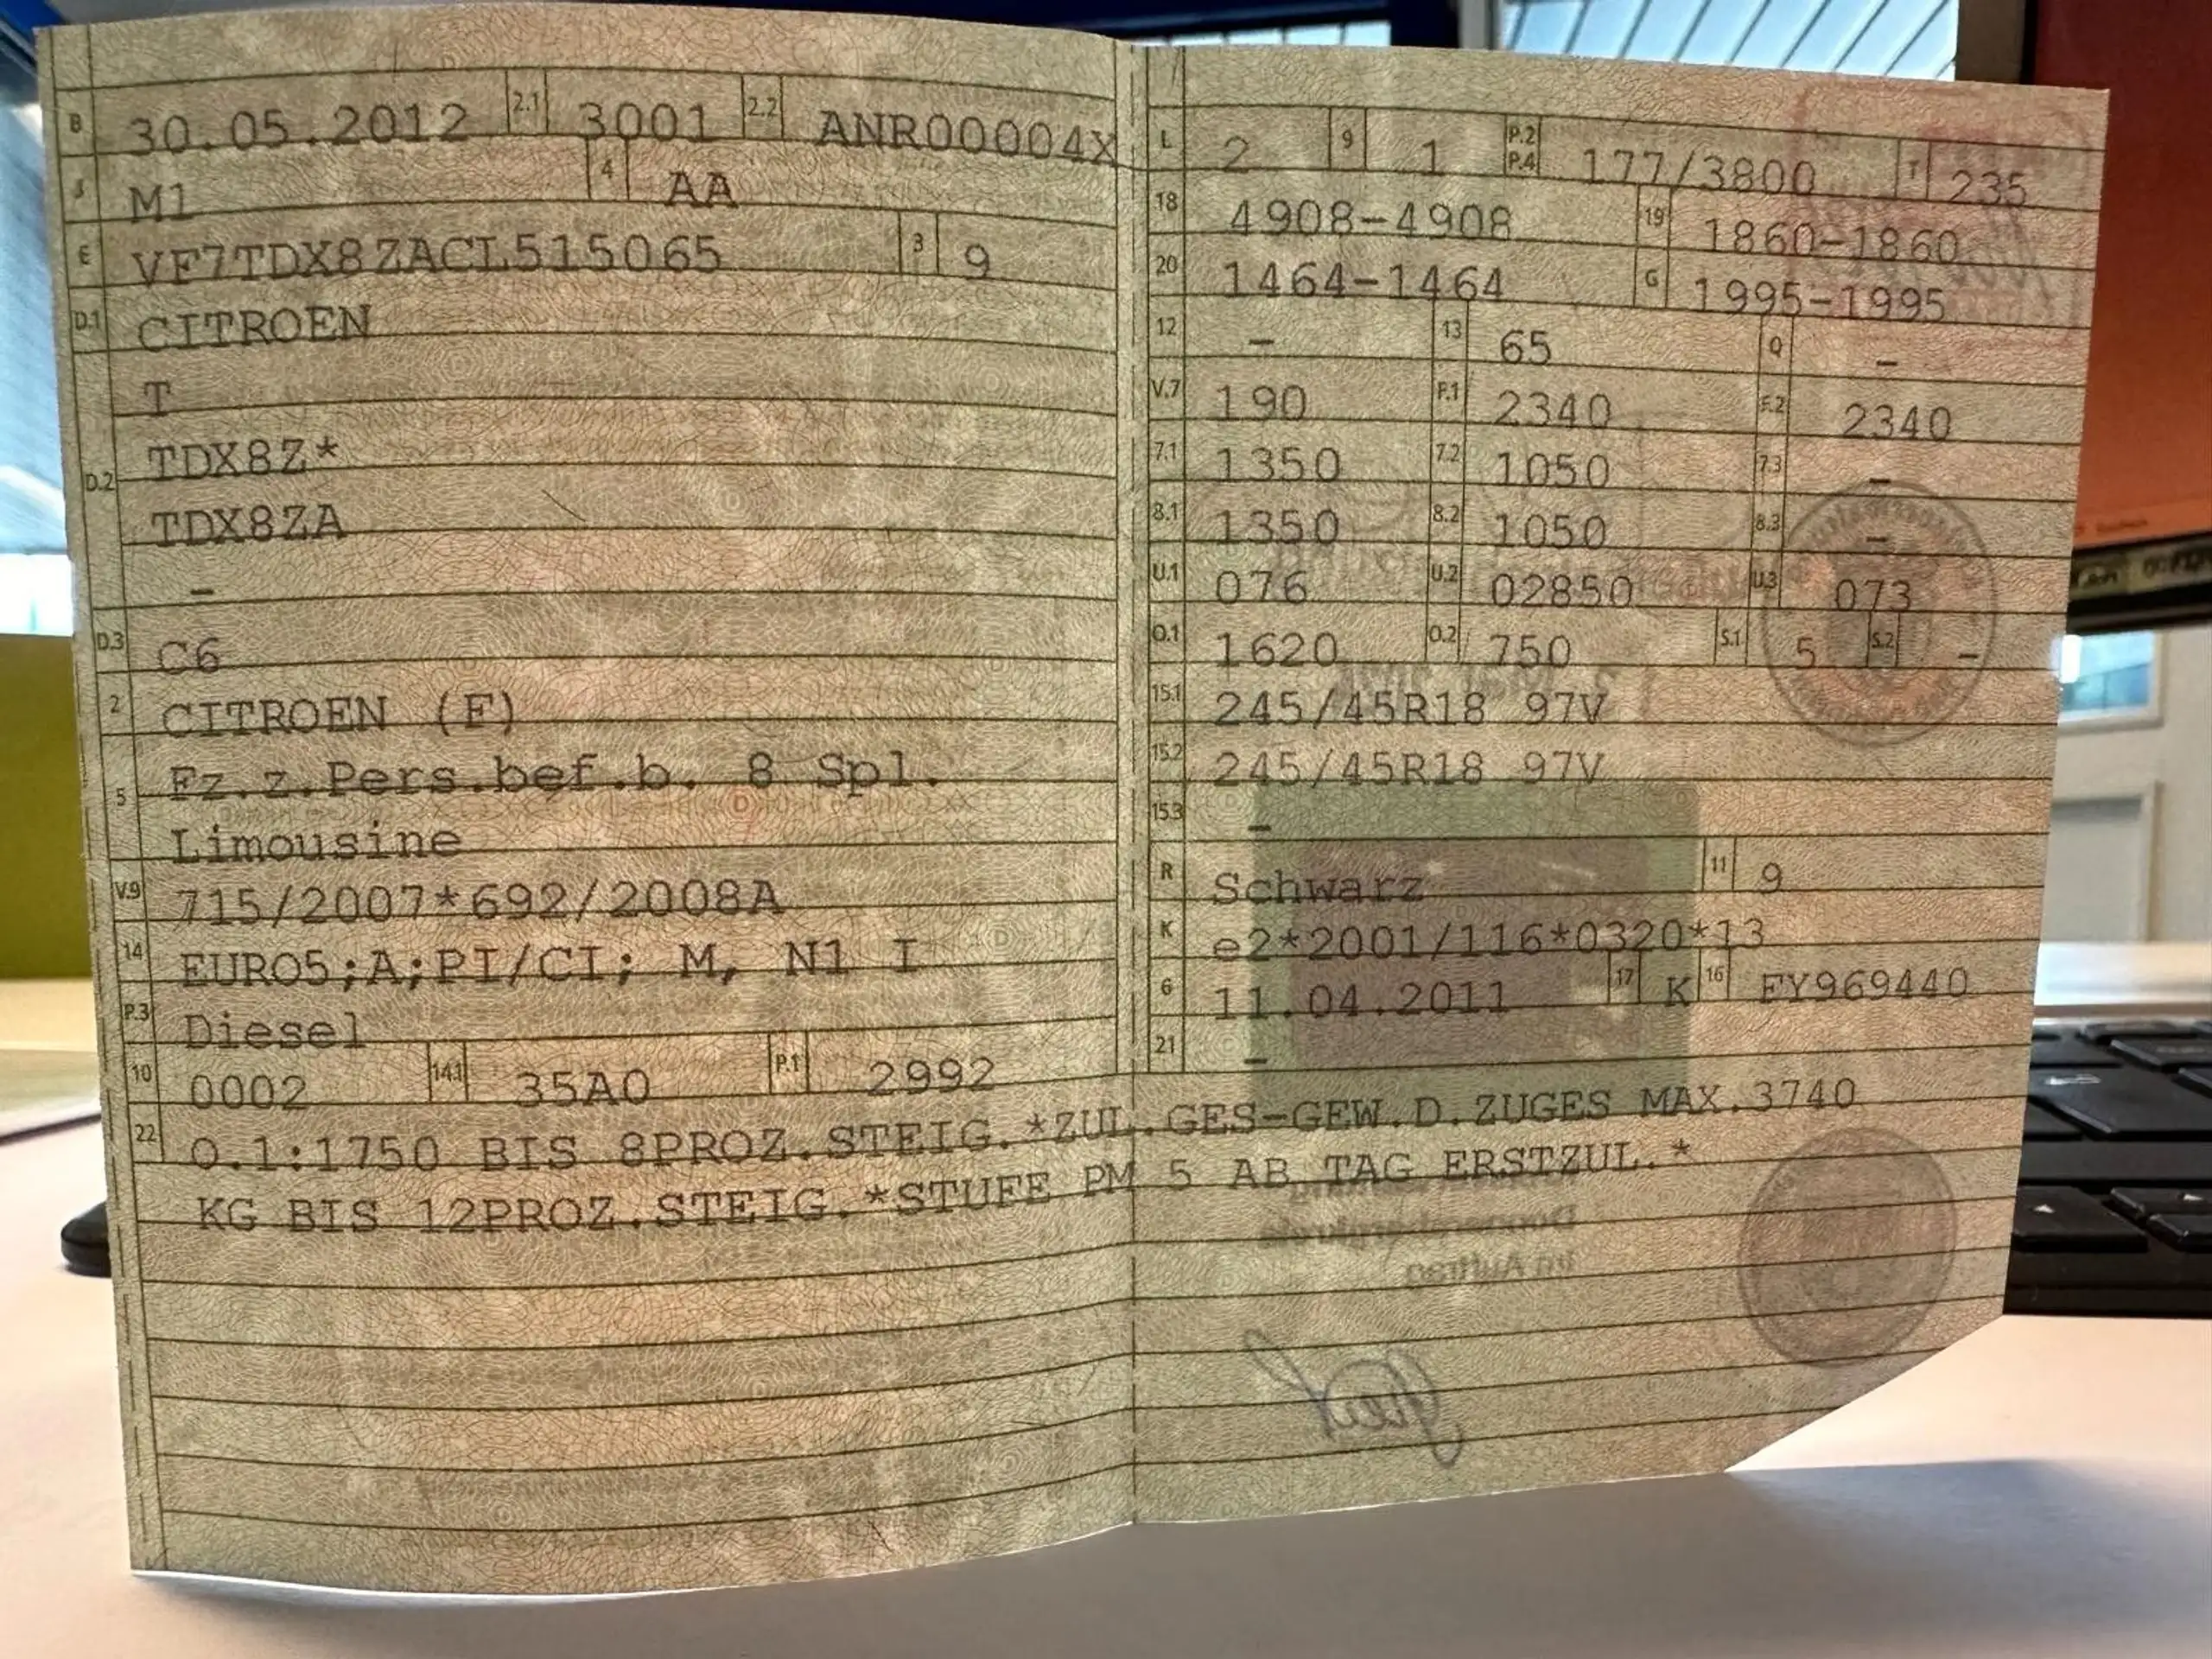 B 30.05.2012 2.1 3001 2.2 ANR00004X
J M1 4 AA
E VF7TDX8ZACL515065 3 9
D.1 CITROEN
T
D.2 TDX8Z*
TDX8ZA
–
D.3 C6
2 CITROEN (F)
5 Fz.z.Pers.bef.b. 8 Spl.
Limousine
V.9 715/2007*692/2008A
14 EURO5;A;PI/CI; M, N1 I
P.3 Diesel
10 0002 14.1 35A0 P.1 2992
L 2 9 1 P.2 P.4 177/3800 T 235
18 4908-4908 19 1860-1860
20 1464-1464 G 1995-1995
12 – 13 65 Q –
V.7 190 F.1 2340 F.2 2340
7.1 1350 7.2 1050 7.3 –
8.1 1350 8.2 1050 8.3 –
U.1 076 U.2 02850 U.3 073
O.1 1620 O.2 750 S.1 5 S.2 –
15.1 245/45R18 97V
15.2 245/45R18 97V
15.3 –
R Schwarz 11 9
K e2*2001/116*0320*13
6 11.04.2011 17 K 16 FY969440
21 –
22 O.1:1750 BIS 8PROZ.STEIG.*ZUL.GES-GEW.D.ZUGES MAX.3740
KG BIS 12PROZ.STEIG.*STUFE PM 5 AB TAG ERSTZUL.*
Donnersbergkreis
Im Auftrag